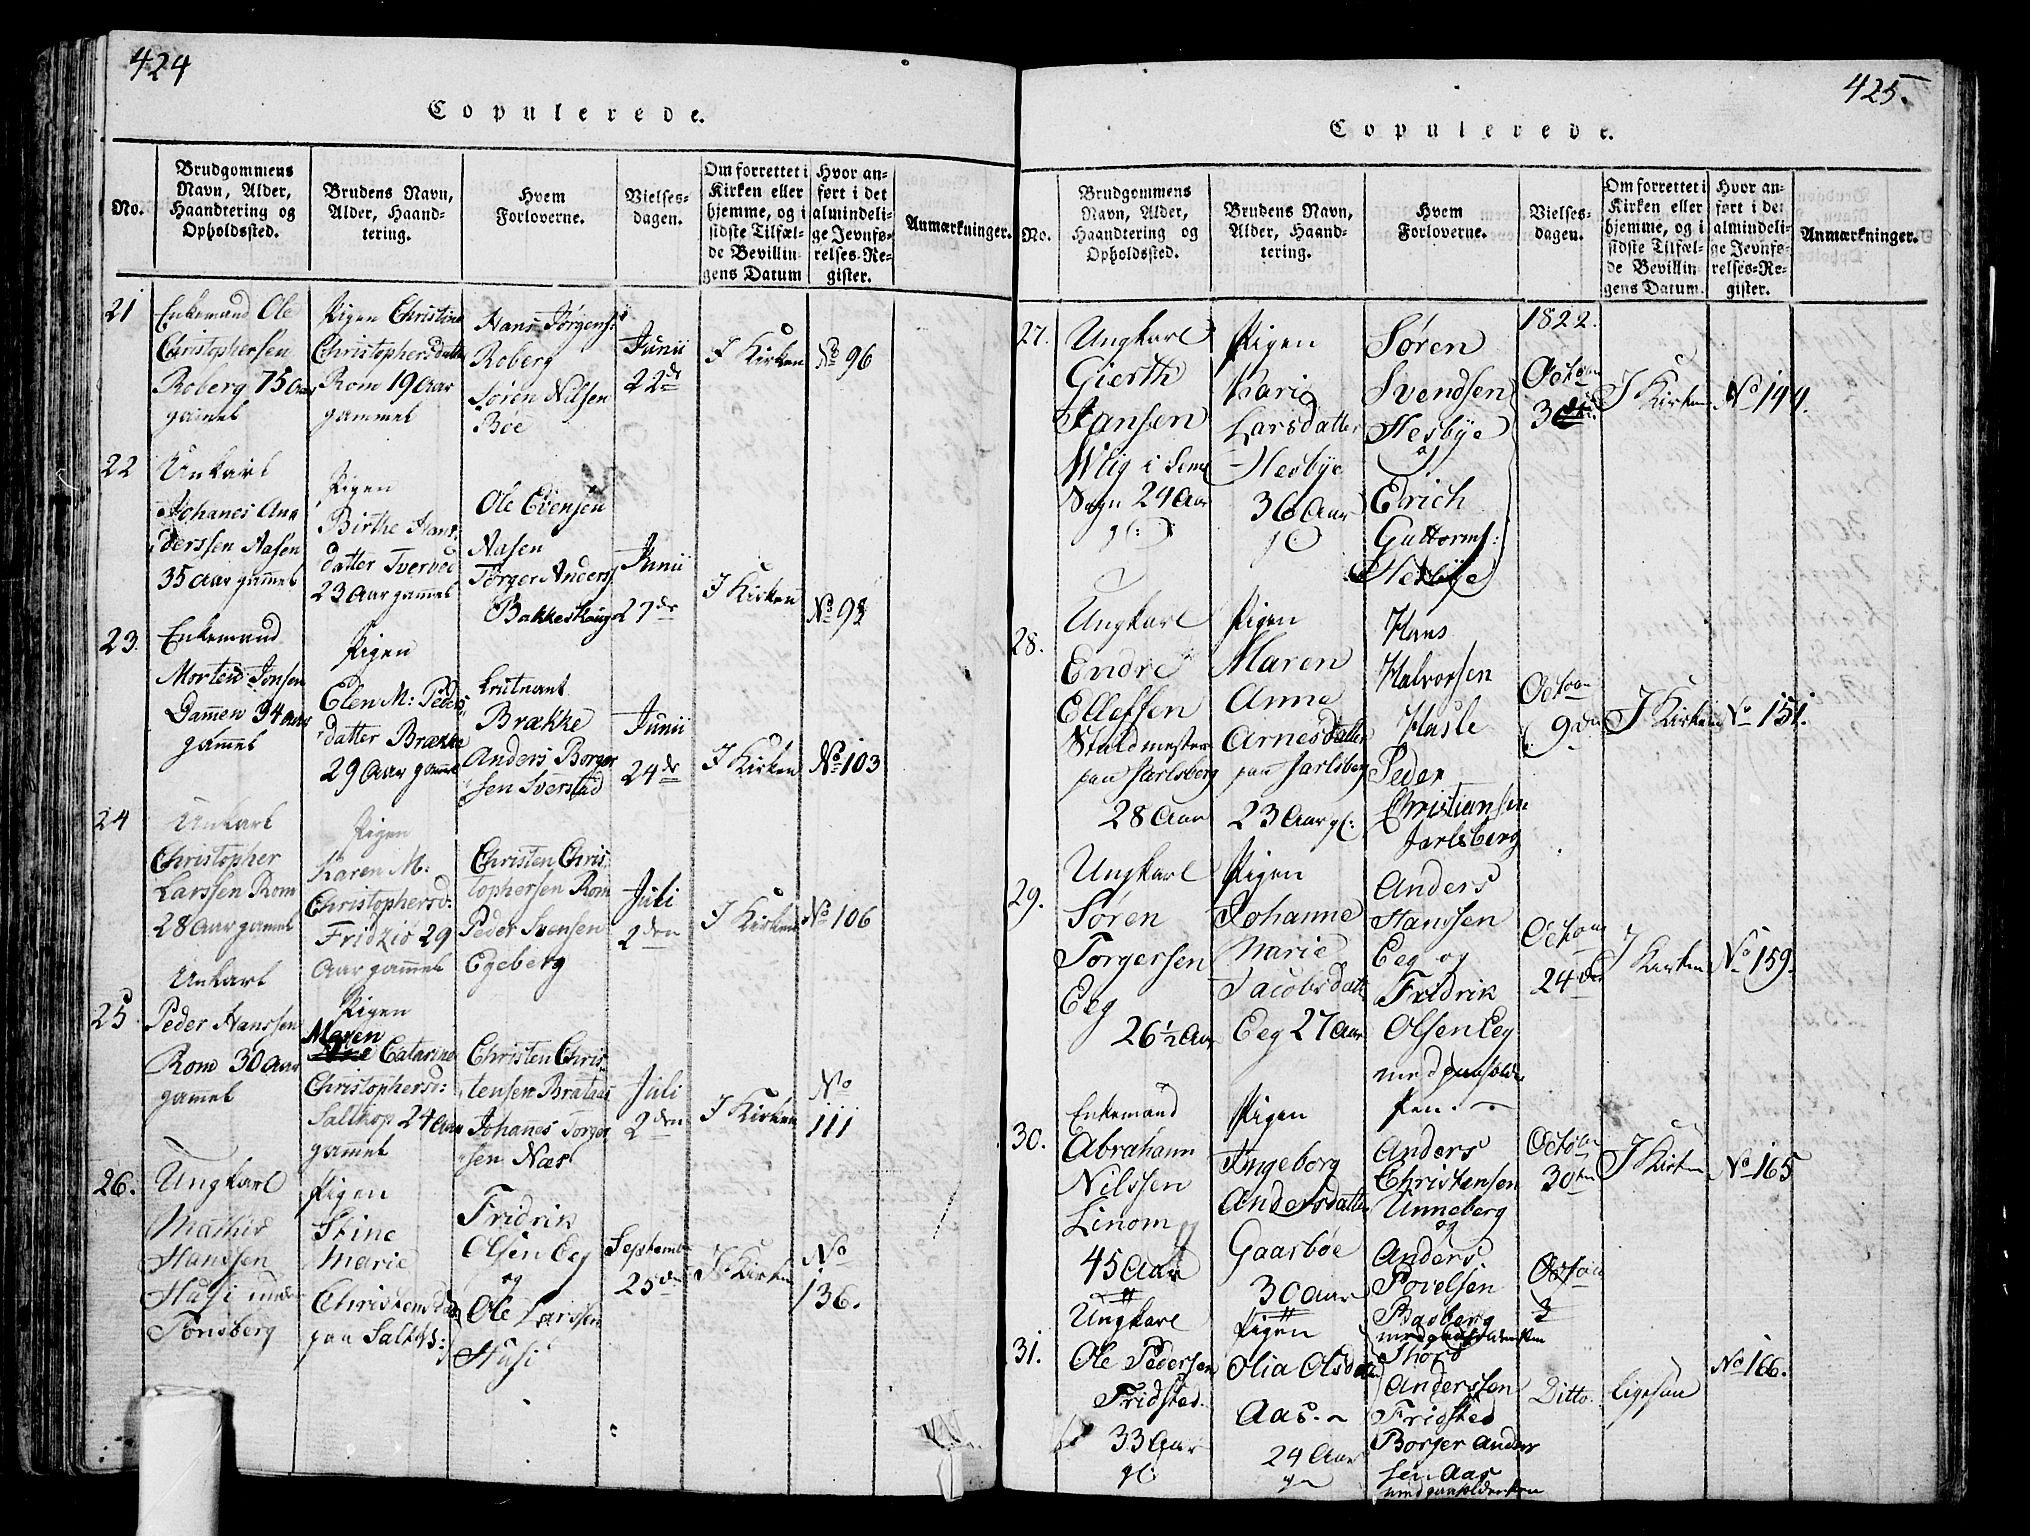 424
Copulerede.
No.
Brudgommens
Navn, Alder,
Haandtering og
Opholdssted.
Brudens Navn,
Alder, Haand-
tering.
Hvem
Forloverne.
Vielses-
dagen.
Om forrettet i
Kirken eller
hjemme, og i
sidste Tilfæl-
de Bevillin-
gens Datum
Hvor an-
ført i det
almindeli-
ge Jevnfø-
relses-Re-
gister.
Anmærkninger.
21
Enkemand Ole
Christophersen
Roberg 75 Aar
gamel
Pigen Christine
Christophersdatter
Rom 19 Aar
gammel
Hans Jørgens:
Roberg
Søren Nilsen
Bøe
Junii
22de
I Kirken
No 96
22
Unkarl
Johanes An
derssen Aasen
35 Aar gamel
Pigen
Birthe Hans
datter Tverved
23 Aar gamel
Ole Evensen
Aasen
Torger Anders
Bakkeskaug
Junii
27de
I Kirken
No 98
23.
Enkemand
Morten Jonsen
Dammen 34 Aar
gamel
Pigen
Elen M: Peders
datter Brække
29 Aar gamel
Leutnant
Brække
Anders Borger
sen Sverstad
Junii
24de
I Kirken
No 103
24
Unkarl
Christopher
Larssen Rom
28 Aar gamel
Pigen
Karen M:
Christophersd:
Fridziø 29
Aar gamel
Christen Chris
tophersen Rom
Peder Svensen
Egeberg
Juli
2den
I Kirken
No 106
25
Unkarl
Peder Hanssen
Rom 30 Aar
gamel
Pigen
Maren
Catarine
Christophersd:
Saltkop 24 Aar
gamel
Christen Chris
tensen Brataas
Johanes Torger
sen Næs
Juli
2den
I Kirken
No
111
26.
Ungkarl
Mathis
Hansen
Husi under
Tønsberg
Pigen
Stine
Marie
Christensdat
paa
Fridrik
Olsen Eeg
og
Ole Larssen
Husi
Septembr
25de
I Kirken
No
136.
425.
Copulerede.
No.
Brudgommens
Navn, Alder,
Haandtering og
Opholdssted.
Brudens Navn,
Alder, Haand-
tering.
Hvem
Forloverne.
Vielses-
dagen.
Om forrettet i
Kirken eller
hjemme, og i
sidste Tilfæl-
de Bevillin-
gens Datum.
Hvor an-
ført i det
almindeli-
ge Jevnfø-
relses-Re-
gister.
Anmærkninger.
27.
Ungkarl
Gierth
Jansen
i Sem
Sogn 24 Aar
gl:
Pigen
Kari
Larsdatter
Hesbye
36 Aar
Søren
Svendsen
Hesbye
og
Erich
Guttorms:
Hesbye
1822.
Octobr
3die
I Kirken
No 144.
28.
Ungkarl
Endre
Ellefsen
Staldmester
paa Jarlsberg
28 Aar
Pigen
Maren
Anne
Arnesdatter
paa Jarlsberg
23 Aar gl:
Hans
Halvorsen
Hasle
Peder
Christiansen
Jarlsberg
Octobr
9de
I Kirken
No 151.
29.
Ungkarl
Søren
Torgersen
Eeg
26½ Aar
Pigen
Johanne
Marie
Jacobsdatt
Eeg 27 Aar
Anders
Hansen
Eeg og
Fridrik
Olsen Eeg
med paaholden
Pen.
Octobr
24de
I Kirken
No 159.
30.
Enkemand
Abraham
Nilssen
Linom
45 Aar
Pigen
Ingeborg
Andersdatter
Gaarbøe
30 Aar
Anders
Christensen
Unneberg
og
Anders
Povelsen
Basberg
Octobr
30te
I Kirken
No 165
31.
Ungkarl
Ole Pedersen
Fridsted.
33 Aar
gl:
Pigen
Olia Olsdat
Aas.
24 Aar
Thor
Anderssen
Fridsted
Borger Ander
sen Aas
med paaholden Pen
Ditto.
ligesaa
No 166.